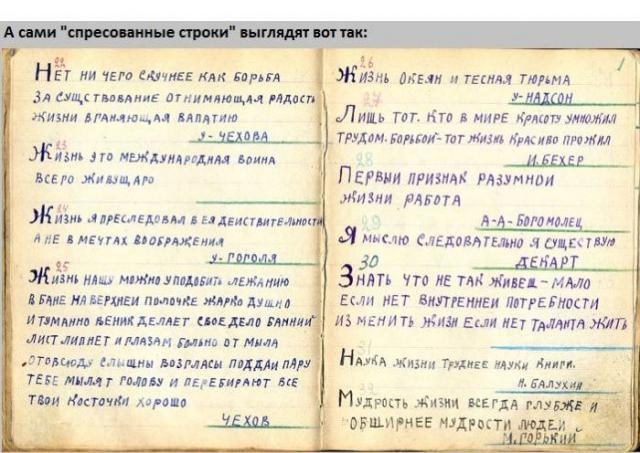 А сами "спресованные строки" выглядят вот так:
22
НЕТ НИ ЧЕГО СКУЧНЕЕ КАК БОРЬБА
ЗА СУЩСТВОВАНИЕ ОТНИМАЮЩАЯ РАДОСТЬ
ЖИЗНИ ВГАНЯЮЩАЯ ВАПАТИЮ
У-ЧЕХОВА
23
ЖИЗНЬ ЭТО МЕЖДУНАРОДНАЯ ВОИНА
ВСЕГО ЖИВУЩАГО
24
ЖИЗНЬ Я ПРЕСЛЕДОВАЛ В ЕЯ ДЕЙСТВИТЕЛЬНОСТИ
А НЕ В МЕЧТАХ ВООБРАЖЕНИЯ
У-ГОГОЛЯ
25
ЖИЗНЬ НАШУ МОЖНО УПОДОБИТЬ ЛЕЖАНИЮ
В БАНЕ НА ВЕРХНЕИ ПОЛОЧКЕ ЖАРКО ДУШНО
И ТУМАННО ВЕНИК ДЕЛАЕТ СВОЕ ДЕЛО БАННИЙ
ЛИСТ ЛИПНЕТ И ГЛАЗАМ БОЛЬНО ОТ МЫЛА
ОТОВСЮДУ СЛЫШНЫ ВОЗГЛАСЫ ПОДДАИ ПАРУ
ТЕБЕ МЫЛЯТ ГОЛОВУ И ПЕРЕБИРАЮТ ВСЕ
ТВОИ КОСТОЧКИ ХОРОШО
ЧЕХОВ
1
26
ЖИЗНЬ ОКЕЯН И ТЕСНАЯ ТЮРЬМА
У-НАДСОН
27
ЛИЩЬ ТОТ. КТО В МИРЕ КРАСОТУ УМНОЖИЛ
ТРУДОМ. БОРЬБОЙ-ТОТ ЖИЗНЬ КРАСИВО ПРОЖИЛ
И. БЕХЕР
28
ПЕРВЫЙ ПРИЗНАК РАЗУМНОИ
ЖИЗНИ РАБОТА
А-А-БОГОМОЛЕЦ
29
Я МЫСЛЮ СЛЕДОВАТЕЛЬНО Я СУЩЕСТВУЮ
ДЕКАРТ
30
ЗНАТЬ ЧТО НЕ ТАК ЖИВЕШ-МАЛО
ЕСЛИ НЕТ ВНУТРЕННЕИ ПОТРЕБНОСТИ
ИЗ МЕНИТЬ ЖИЗН ЕСЛИ НЕТ ТАЛАНТА ЖИТЬ
31
НАУКА ЖИЗНИ ТРУДНЕЕ НАУКИ КНИГИ.
Н. БАЛУХИН
МУДРОСТЬ ЖИЗНИ ВСЕГДА ГЛУБЖЕ И
ОБЩИРНЕЕ МУДРОСТИ ЛЮДЕЙ
М. ГОРЬКИЙ